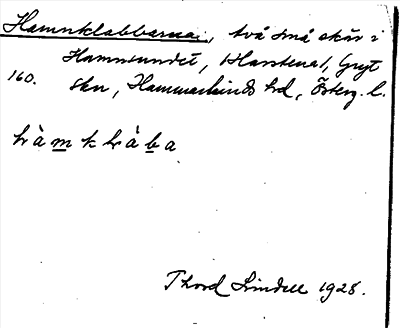 Hamnklabbarna, två små skär i
Hamnsundet, Harstena 1, Gryt
160. skn, Hammarkinds hd, Österg. l.
hàmkłàba
Thord Lindell 1928.